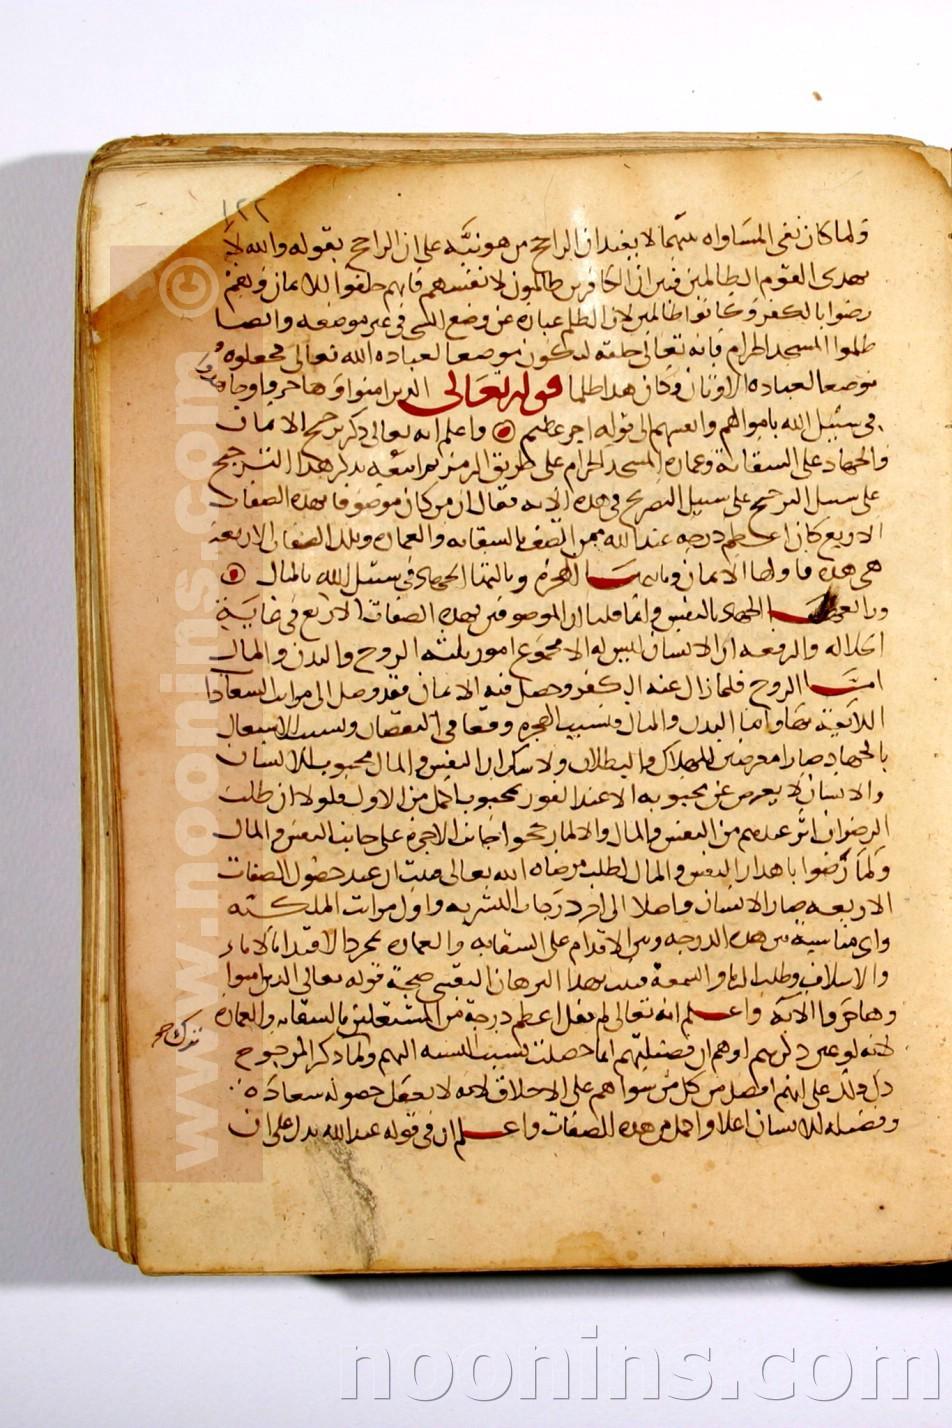 ١٢٢
ولما كان نفى المساواه بينهما لا يفيد ان الراجح من هو نبّه على ان الراجح بقوله والله لا
يهدى القوم الظالمين فبين ان الكافرين ظالمون لانفسهم فانهم خلقوا للايمان وهم
رضوا بالكفر وكانوا ظالمين لان الظلم عباره عن وضع الشى فى غير موضعه وايضا
ظلموا المسجد الحرام فانه تعالى خلقه ليكون موضعا لعباده الله تعالى فجعلوه
موضعا لعباده الاوثان وكان هذا ظلما قوله تعالى الذين امنوا وهاجروا وجاهدوا
فى سبيل الله باموالهم وانفسهم الى قوله اجر عظيم واعلم انه تعالى ذكر ترجيح الايمان
والجهاد على السقاية وعماره المسجد الحرام على طريق الرمز ثم اتبعه بذكر هذا الترجيح
على سبيل الترجيح على سبيل التصريح فى هذه الايه فقال ان من كان موصوفا بهذه الصفات
الاربع كان اعظم درجه عند الله ممن اتصف بالسقايه والعماره وتلك الصفات الاربعه
هى هذه فاولها الايمان وثانيها الهجره وثالثها الجهاد فى سبيل الله بالمال
ورابعها الجهاد بالنفس وانما قلنا ان الموصوفين بهذه الصفات الاربع فى غاية
الجلاله والرفعه ان الانسان ليس له الا مجموع امور ثلثه الروح والبدن والمال
اما الروح فلما زال عنه الكفر وحصل فيه الايمان فقد وصل الى مراتب السعادات
اللائقة بها واما البدن والمال فبسبب الهجره وقعا فى النقصان وبسبب الاشتغال
بالجهاد صارا معرضين للهلاك والبطلان ولا شك ان النفس والمال محبوب للانسان
والانسان لا يعرض عن محبوبه الا عند الفوز بمحبوب اكمل من الاول فلولا ان طلب
الرضوان اتم عندهم من النفس والمال والا لما رجحوا جانب الاخره على جانب النفس والمال
ولما رضوا باهدار النفس والمال لطلب مرضاه الله تعالى فثبت ان عند حصول الصفات
الاربعه صار الانسان واصلا الى اخر درجات البشريه واول مراتب الملكيته
واى مناسبة بين هذه الدرجه وبين الاقدام على السقايه والعماره بمجرد الاقتدا بالاباء
والاسلاف وطلب الريا والسمعة فثبت بهذا البرهان اليقينى صحة قوله تعالى الذين امنوا
وهاجروا الاية واعلم انه تعالى لم يقل اعظم درجة من المشتغلين بالسقايه والعماره
لانه لو عين ذكرهم اوهم ان فضيلتهم انما حصلت بسبب النسبه اليهم ولما ذكر المرجوح
دل ذلك على انهم افضل من كل من سواهم على الاطلاق لانه لا يعقل حصوله سعادة
وفضيله للانسان اعلا واكمل من هذه الصفات واعلم ان فى قوله عند الله يدل على ان
© www.noonins.com
noonins.com